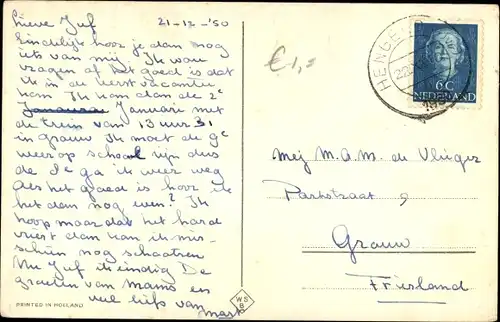 Lieve Juf 21-12-'50
Eindelijk hoor je dan nog
iets van mij. Ik wou
vragen of het goed is dat
ik in de kerstvacantie
kom Ik kom dan de 2e
Januari Januari met
de trein van 13 uur 31
in Grauw Ik moet de 9e
weer op school zijn dus
de 8e ga ik weer weg
Als het goed is hoor ik
het dan nog even? Ik
hoop maar dat het hard
vriest dan kan ik mis-
schien nog schaatsen
Nu Juf ik eindig De
groeten van Mams en
veel liefs van
Mark
PRINTED IN HOLLAND
W S
B
€1,=
HENGEL
6 C
NEDERLAND
Mej M.A.M. de Vlieger
Parkstraat 9
Grauw
Friesland